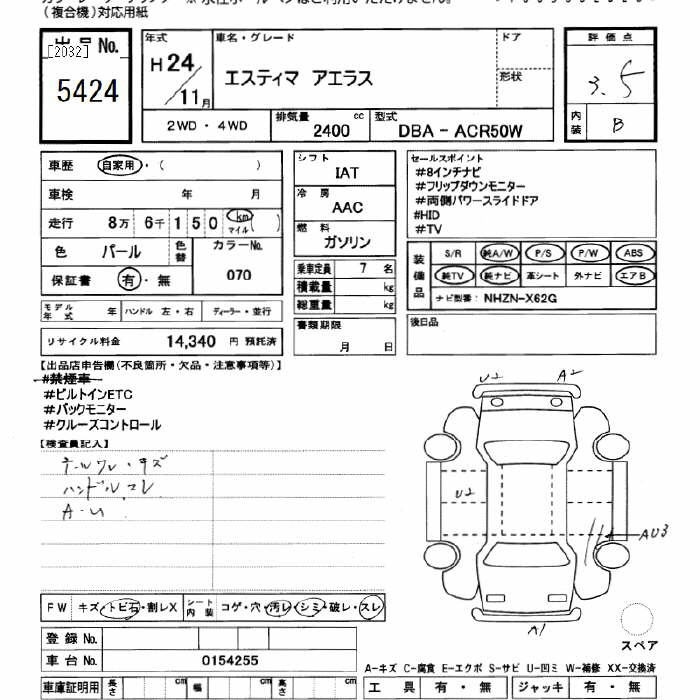 (複合機)対応用紙
出品No.
[2032]
5424
年式
H24/11月
車名・グレード
エスティマ アエラス
ドア
形状
評価点
3.5
内装
B
2WD・4WD
排気量
2400 cc
型式
DBA - ACR50W
車歴 自家用・( )
車検 年 月
走行 8万 6千 1 5 0 km マイル ( )
色 パール
色替
カラーNo.
070
保証書 有・無
モデル年式 年
ハンドル 左・右
ディーラー・並行
リサイクル料金 14,340 円 預託済
シフト
IAT
冷房
AAC
燃料
ガソリン
乗車定員 7 名
積載量 kg
総重量 kg
書類期限
月 日
セールスポイント
#8インチナビ
#フリップダウンモニター
#両側パワースライドドア
#HID
#TV
装備品
S/R 純A/W P/S P/W ABS
純TV 純ナビ 革シート 外ナビ エアB
ナビ型番: NHZN-X62G
後日品
【出品店申告欄(不良箇所・欠品・注意事項等)】
#禁煙車
#ビルトインETC
#バックモニター
#クルーズコントロール
【検査員記入】
テールワレ・キズ
ハンドル スレ
A-U
U2 A2
U2
AU3
A1
スペア
FW キズ・トビ石・割レX
シート内装 コゲ・穴・汚レ・シミ・破レ・スレ
登録No.
車台No. 0154255
車庫証明用 長さ cm 幅 cm 高さ cm
A-キズ C-腐食 E-エクボ S-サビ U-凹ミ W-補修 XX-交換済
工具 有・無 ジャッキ 有・無